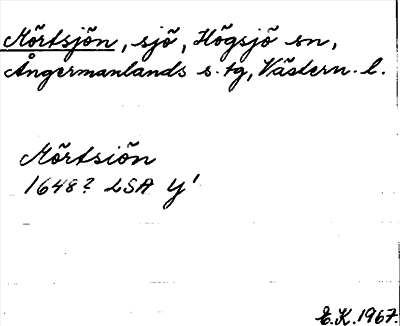 Mörtsjön, sjö, Högsjö sn,
Ångermanlands s. tg, Västern. l.
Mörtsiön
1648? LSA Y'
E.K. 1967.